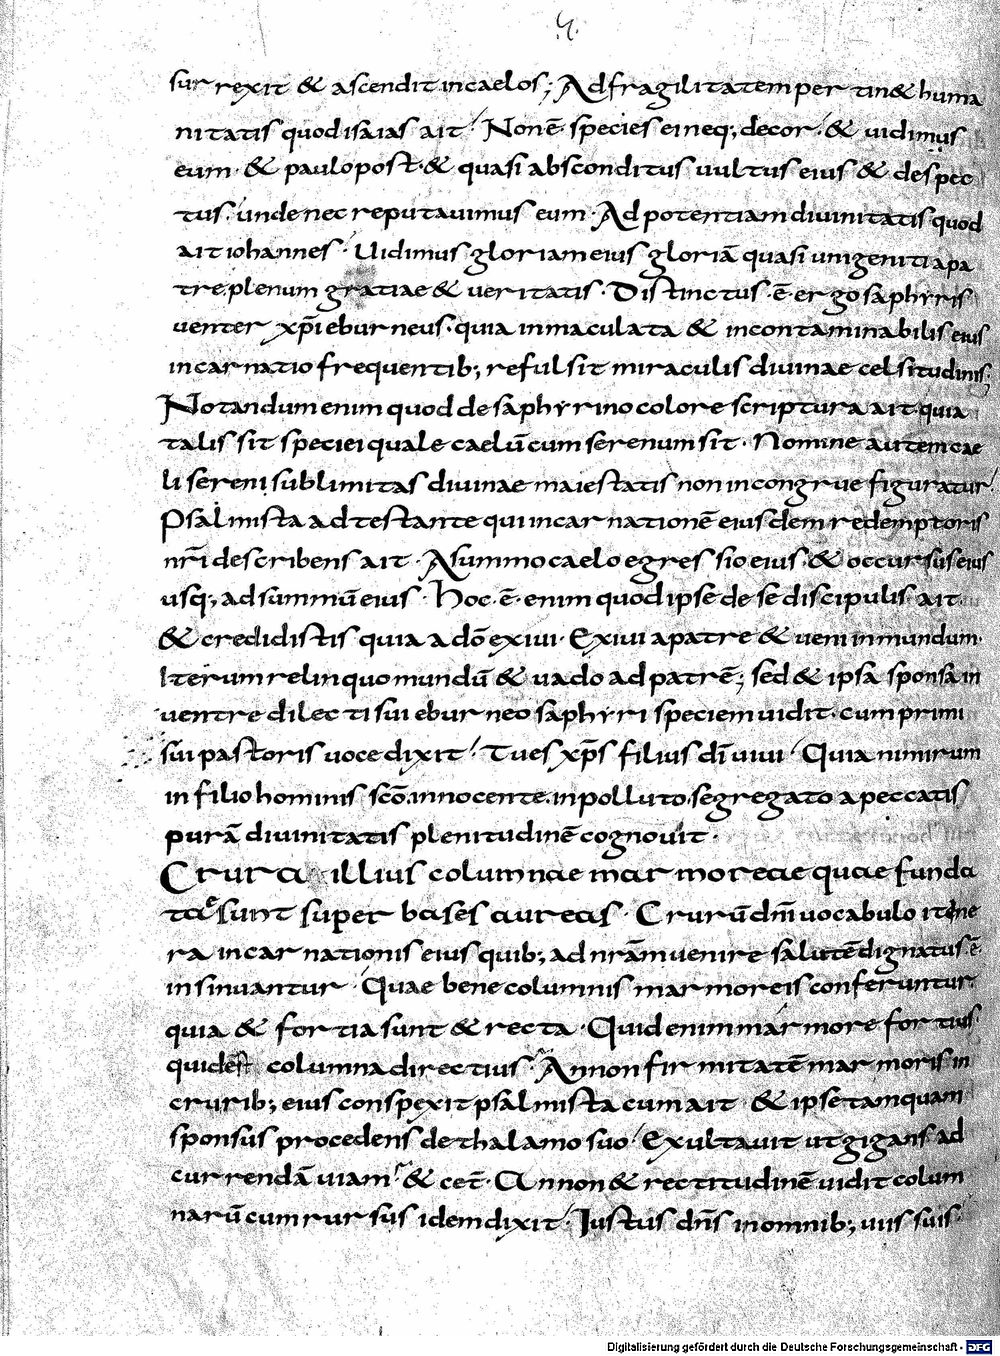 surrexit & ascendit in caelos; Ad fragilitatem pertin& huma
nitatis quod isaias ait. Non ē species ei neq; decor. & uidimus
eum. & paulo post. & quasi absconditus uultus eius & despec
tus. unde nec reputauimus eum. Ad potentiam diuinitatis quod
ait iohannes. Uidimus gloriam eius gloriā quasi unigeniti a pa
tre plenum gratiae & ueritatis. Distinctus. ē ergo saphyris
uenter xp̄i eburneus. quia inmaculata & incontaminabilis eius
incarnatio frequentib; refulsit miraculis diuinae celsitudinis;
Notandum enim quod de saphyrino colore scriptura ait quia
talis sit speciei quale caelū cum serenum sit. Nomine autem cae
li sereni sublimitas diuinae maiestatis non incongrue figuratur.
Psalmista adtestante qui incarnationē eiusdem redemptoris
nr̄i describens ait. A summo caelo egressio eius. & occursus eius
usq; ad summū eius. Hoc. ē. enim quod ipse de se discipulis ait
& credidistis quia a dō exiui. Exiui a patre & ueni in mundum.
Iterum relinquo mundū & uado ad patrē; sed & ipsa sponsa in
uentre dilecti sui eburneo saphyri speciem uidit. cum primi
sui pastoris uoce dixit. Tu es xp̄s filius dī uiui. Quia nimirum
in filio hominis scō. innocente. inpolluto. segregato a peccatis
purā diuinitatis plenitudinē cognouit.
Crura illius columnae marmoreae quae funda
tae sunt super bases aureas. Crurū dn̄i uocabulo itine
ra incarnationis eius quib; ad nr̄am uenire salutē dignatus. ē.
insinuantur. Quae bene columnis marmoreis conferuntur.
quia & fortia sunt & recta. Quid enim marmore fortius
quid est columna directius. An non firmitatē marmoris in
crurib; eius conspexit psalmista cum ait. & ipse tamquam
sponsus procedens de thalamo suo. Exultauit ut gigans ad
currendā uiam. & cet̄. An non & rectitudinē uidit colum
narū cum rursus idem dixit. Iustus dn̄s in omnib; uiis suis.
Digitalisierung gefördert durch die Deutsche Forschungsgemeinschaft - DFG